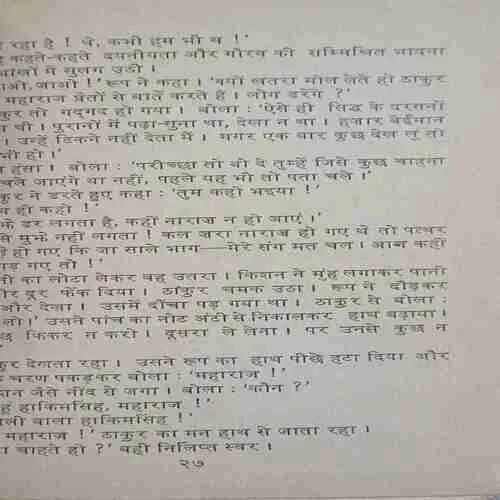 रहा है ! थे, कभी हम भी थे !'
कहते-कहते दयनीयता और गौरव की सम्मिलित भावना
आंखों में सुलग उठी ।
जाओ !' रूप ने कहा । 'क्यों खतरा मोल लेते हो ठाकुर
महाराज प्रेतों से बातें करते हैं । लोग डरेंगे ?'
तो गद्गद हो गया । बोला : 'ऐसे ही सिद्ध के दरसनों
थी । पुरानों में पढ़ा-सुना था, देखा न था । हजार बेईमान
। उन्हें टिकने नहीं देता मैं । मगर एक बार कुछ देख लूं तो
भी हो ।'
हंसा । बोला : 'परीच्छा तो वो दे तुम्हें जिसे कुछ चाहना
चले जाएंगे या नहीं, पहले यह भी तो पता चले ।'
ने डरते हुए कहा : 'तुम कहो भइया !'
हो कहो !'
डर लगता है, कहीं नाराज़ न हो जाएं ।'
मुझे नहीं लगता ! कल ज़रा नाराज़ हो गए थे तो पत्थर
हो गए कि जा साले भाग——मेरे संग मत चल । आज कहीं
गए तो !'
का लोटा लेकर वह उतरा । किशन ने मुंह लगाकर पानी
दूर फेंक दिया । ठाकुर चमक उठा । रूप ने दौड़कर
और देखा । उसमें दोंचा पड़ गया था । ठाकुर से बोला :
लो ।' उसने पांच का नोट अंटी से निकालकर हाथ बढ़ाया ।
फिकर न करो । दूसरा ले लेना । पर उनसे कुछ न
देखता रहा । उसने रूप का हाथ पीछे हटा दिया और
चरण पकड़कर बोला : 'महाराज !'
जैसे नींद से जगा । बोला : 'कौन ?'
हाकिमसिंह, महाराज !'
वाला हाकिमसिंह !'
महाराज !' ठाकुर का मन हाथ से जाता रहा ।
चाहते हो ?' वही निर्लिप्त स्वर ।
२७